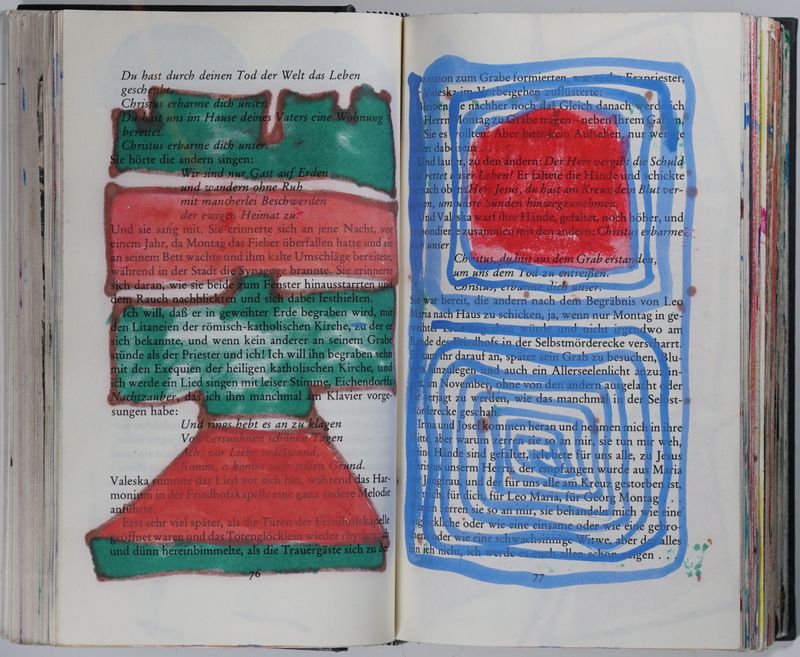 Du hast durch deinen Tod der Welt das Leben
geschenkt.
Christus erbarme dich unser.
Du hast uns im Hause deines Vaters eine Wohnung
bereitet.
Christus erbarme dich unser.
Sie hörte die andern singen:
Wir sind nur Gast auf Erden
und wandern ohne Ruh
mit mancherlei Beschwerden
der ewigen Heimat zu.
Und sie sang mit. Sie erinnerte sich an jene Nacht, vor
einem Jahr, da Montag das Fieber überfallen hatte und sie
an seinem Bett wachte und ihm kalte Umschläge bereitete,
während in der Stadt die Synagoge brannte. Sie erinnerte
sich daran, wie sie beide zum Fenster hinausstarrten und
dem Rauch nachblickten und sich dabei festhielten.
Ich will, daß er in geweihter Erde begraben wird, mit
den Litaneien der römisch-katholischen Kirche, zu der er
sich bekannte, und wenn kein anderer an seinem Grabe
stünde als der Priester und ich! Ich will ihn begraben sehn
mit den Exequien der heiligen katholischen Kirche, und
ich werde ein Lied singen mit leiser Stimme, Eichendorffs
Nachtzauber, das ich ihm manchmal am Klavier vorge-
sungen habe:
Und rings hebt es an zu klagen
Von versunknen schönen Tagen
Ach, vor Liebe todeswund,
Komm, o komm zum stillen Grund.
Valeska summte das Lied vor sich hin, während das Har-
monium in der Friedhofskapelle eine ganz andere Melodie
anführte.
Erst sehr viel später, als die Türen der Friedhofskapelle
geöffnet waren und das Totenglöcklein wieder rhythmisch
und dünn hereinbimmelte, als die Trauergäste sich zu der
76
zession zum Grabe formierten, war es der Erzpriester,
Valeska im Vorbeigehen zuflüsterte:
Bleiben Sie nachher noch da! Gleich danach werde ich
Herrn Montag zu Grabe tragen, neben Ihrem Gatten,
Sie es wollten. Aber bitte kein Aufsehen, nur wenige
dabei sein.
Und lauter, zu den andern: Der Herr vergibt die Schuld
rettet unser Leben! Er faltete die Hände und schickte
nach oben: Herr Jesus, du hast am Kreuz dein Blut ver-
um unsre Sünden hinwegzunehmen.
Und Valeska warf ihre Hände, gefaltet, noch höher, und
respondierte zusammen mit den andern: Christus erbarme
unser
Christus, du bist aus dem Grab erstanden,
um uns dem Tod zu entreißen.
Christus, erbarme dich unser.
Sie war bereit, die andern nach dem Begräbnis von Leo
Maria nach Haus zu schicken, ja, wenn nur Montag in ge-
weihter Erde begraben würde und nicht irgendwo am
Rande des Friedhofs in der Selbstmörderecke verscharrt.
kam ihr darauf an, später sein Grab zu besuchen, Blu-
men anzulegen und auch ein Allerseelenlicht anzuzün-
im November, ohne von den andern ausgelacht oder
verjagt zu werden, wie das manchmal in der Selbst-
mörderecke geschah.
Irma und Josel kommen heran und nehmen mich in ihre
Mitte, aber warum zerren sie so an mir, sie tun mir weh,
meine Hände sind gefaltet, ich bete für uns alle, zu Jesus
Christus unserm Herrn, der empfangen wurde aus Maria
der Jungfrau, und der für uns alle am Kreuz gestorben ist,
für mich, für dich, für Leo Maria, für Georg Montag . .
zerren sie so an mir, sie behandeln mich wie eine
unglückliche oder wie eine einsame oder wie eine gebro-
chene oder wie eine schwachsinnige Witwe, aber das alles
bin ich nicht, ich werde es euch allen schon zeigen . . .
77